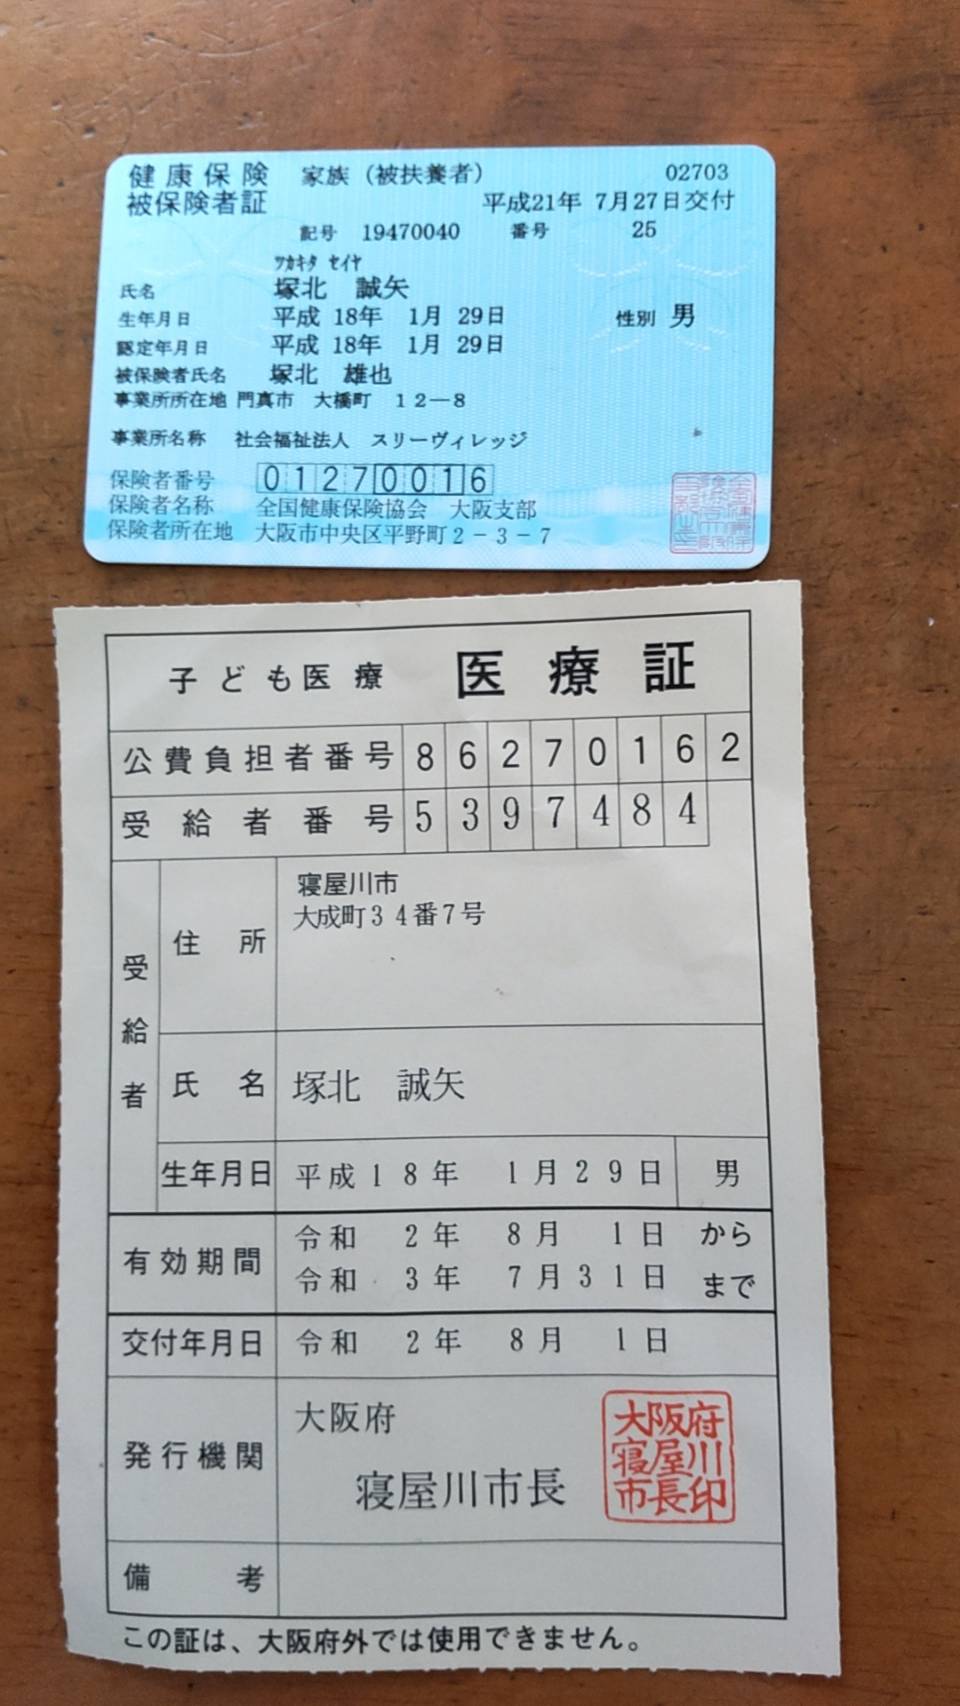 健康保険 家族（被扶養者） 02703
被保険者証 平成21年 7月27日交付
記号 19470040 番号 25
ツカキタ セイヤ
氏名 塚北 誠矢
生年月日 平成 18年 1月 29日 性別 男
認定年月日 平成 18年 1月 29日
被保険者氏名 塚北 雄也
事業所所在地 門真市 大橋町 12－8
事業所名称 社会福祉法人 スリーヴィレッジ
保険者番号 01270016
保険者名称 全国健康保険協会 大阪支部
保険者所在地 大阪市中央区平野町2－3－7
子ども医療 医療証
公費負担者番号 86270162
受給者番号 5397484
受給者
住所 寝屋川市
大成町34番7号
氏名 塚北 誠矢
生年月日 平成18年 1月29日 男
有効期間 令和 2年 8月 1日 から
令和 3年 7月31日 まで
交付年月日 令和 2年 8月 1日
発行機関 大阪府
寝屋川市長
大阪府
寝屋川
市長印
備考
この証は、大阪府外では使用できません。